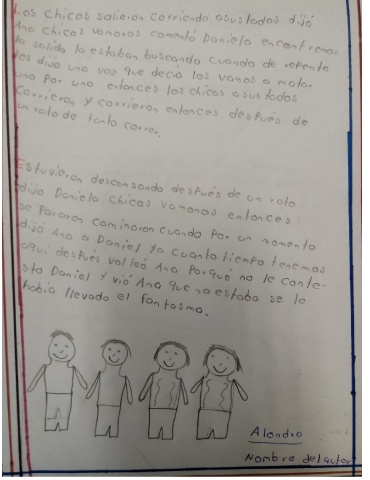 Los chicos salieron corriendo asustados dijó
Ana chicos vamonos comentó Daniela encontremos
la salida la estaban buscando cuando de repente
les dijo una voz que decia los vamos a matar
uno por uno entonces los chicos asustados
corrieron y corrieron entonces después de
un rato de tanto correr.
Estuvieron descansando después de un rato
dijo Daniela chicos vamonos entonces:
se pararon caminaron cuando por un momento
dijó Ana a Daniel ya cuanto tiempo tenemos
aqui después volteó Ana Porqué no le conte-
sto Daniel y vió Ana que no estaba se lo
habia llevado el fantasma.
Alondra
Nombre del actor